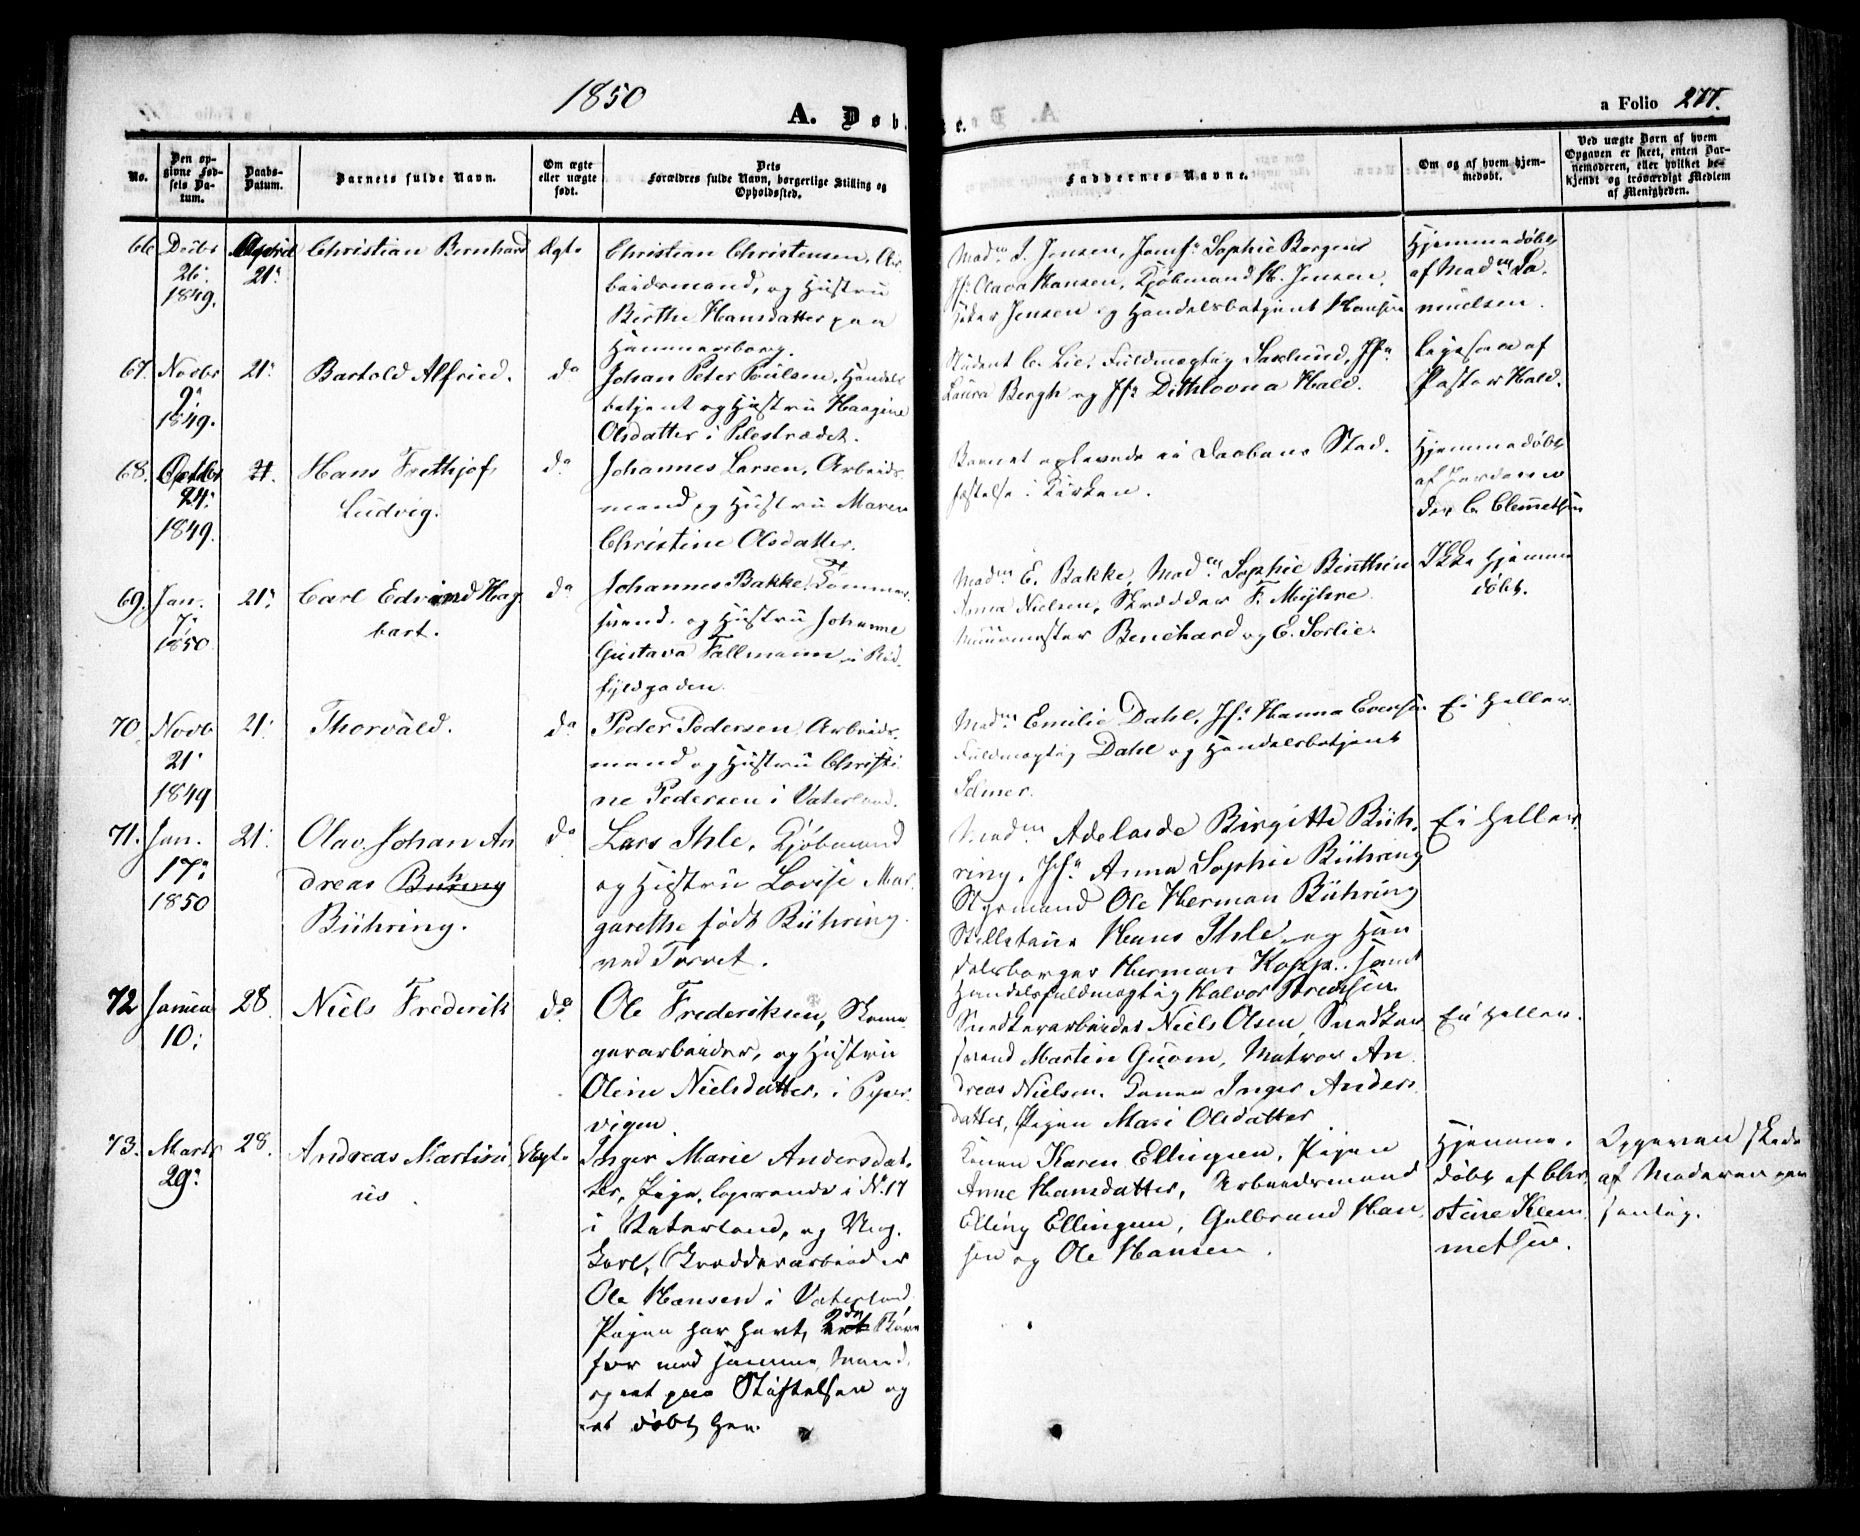 1850
A. Døbte.
a Folio 277.
No.
Den opgivne Fødsels Datum.
Daabs-Datum.
Barnets fulde Navn.
Om ægte eller uægte født.
Dets Forældres fulde Navn, borgerlige Stilling og Opholdssted.
Faddernes Navne.
Om og af hvem hjemmedøbt.
Ved uægte Børn af hvem Opgaven er skeet, enten Barnemoderen, eller hvilket bekjendt og troværdigt Medlem af Menigheden.
66
Decbr
26.
1849.
April
21.
Christian Bernhard
Ægte
Christian Christensen, Ar-
beidsmand, og Hustru
Birthe Hansdatter paa
Hammersborg.
Madm J. Jensen, Jomf. Sophie Borgens
Jf. Olava Hansen, Kjøbmand H. Jensen,
Peder Jensen og Handelsbetjent Hansen
Hjemmedøbt
af Madm Da-
nielsen.
67.
Novbr
9.
1849.
21.
Bartold Alfried.
do
Johan Peter Poulsen, Handels
betjent og Hustru Haagine
Olsdatter i Pilestrædet.
Student C. Lie, Fuldmægtig Saxlund, Jfr
Laura Bergh og Jfr Dithlovna Hald.
Ligesaa af
Pastor Hald.
68.
Octbr
24.
1849.
21.
Hans Frethjof
Ludvig.
do
Johannes Larsen, Arbeids-
mand og Hustru Maren
Christine Olsdatter.
Barnet oplevede ei Daabens Stad-
fæstelse i Kirken.
Hjemmedøbt
af Jordemo
der C. Clemetsen
69.
Jan.
7.
1850
21.
Carl Edvind Hag-
bart.
do
Johannes Bakke, Tømmer-
svend og Hustru Johanne
Gustava Fallmann i Rød-
fyldgaden.
Madm E. Bakke, Madm Sophie Binthin
Anna Nielsen, Skrædder F. Myhre
Muurmester Benehard og E. Sorlie.
Ikke hjemme
døbt.
70.
Novb
21.
1849
21.
Thorvald.
do
Peder Pedersen Arbeids-
mand og Hustru Christi-
ne Pedersen i Vaterland.
Madm Emilie Dahl, Jf. Hanna Evensen
Fuldmægtig Dahl og Handelsbetjent
Selmer.
Ei heller
71.
Jan.
17.
1850
21.
Olav Johan An
dreas Buhring
Bühring.
do
Lars Ihle, Kjøbmand
og Hustru Lovise Mar-
garethe født Bühring
ved Torvet.
Madm Adelaide Birgitte Büh-
ring, Jfr Anna Sophie Bühring
Styrmand Ole Herman Bühring
Hans Ihle og Han
delsborger Herman Kopp, samt
Handelsfuldmægtig Halvor Svensen
Ei heller.
72
Januar
10.
28.
Niels Frederik
do
Ole Frederiksen, Skoma-
gerarbeider, og Hustru
Oline Nielsdatter, i Piper-
vigen.
Snedkerarbeider Niels Olsen, Snedker-
svend Martin Guom, Matros An-
dreas Nielsen, Konen Inger Anders-
datter, Pigen Mari Olsdatter
Ei heller.
73.
Marts
29.
28.
Andreas Martini
us.
Uægte
Inger Marie Andersdat-
ter, Pige, logerende i No 17
i Vaterland, og Ung-
karl, Skrædderarbeider
Ole Hansen i Vaterland.
Pigen har havt 2de Børn
før med samme Mand,
og et paa Stiftelsen og
et døbt her.
Konen Karen Ellingsen, Pigen
Anne Hansdatter, Arbeidsmand
Elling Ellingsen, Gulbrand Han-
sen og Ole Hansen.
Hjemme-
døbt af Chri-
stine Klem-
metsen.
Opgaven skede
af Moderen per-
sonlig.